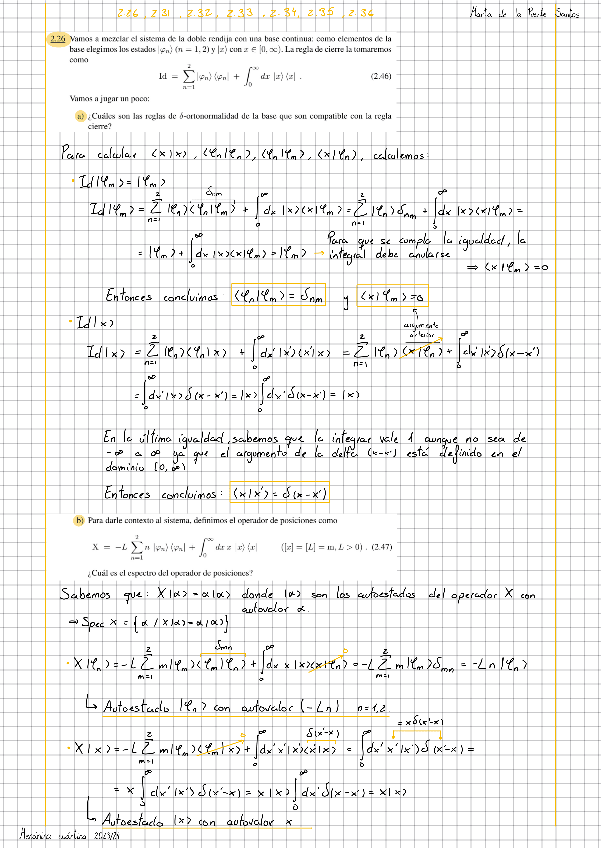 2.26, 2.31, 2.32, 2.33, 2.34, 2.35, 2.36
Marta de la Puente Santos
2.26 Vamos a mezclar el sistema de la doble rendija con una base continua: como elementos de la
base elegimos los estados |φn⟩ (n = 1, 2) y |x⟩ con x ∈ [0, ∞). La regla de cierre la tomaremos
como
Id = ∑_{n=1}^{2} |φn⟩ ⟨φn| + ∫_0^∞ dx |x⟩ ⟨x| . (2.46)
Vamos a jugar un poco:
a) ¿Cuáles son las reglas de δ-ortonormalidad de la base que son compatibles con la regla
cierre?
Para calcular ⟨x|x⟩, ⟨φn|φn⟩, ⟨φn|φn⟩, ⟨x|φn⟩, calculemos:
· Id|φm⟩ = |φm⟩
Id|φm⟩ = ∑_{n=1}^{2} |φn⟩⟨φn|φm⟩ + ∫_0^∞ dx |x⟩⟨x|φm⟩ = ∑_{n=1}^{2} |φn⟩ δnm + ∫_0^∞ dx |x⟩⟨x|φm⟩ =
δnm
= |φm⟩ + ∫_0^∞ dx |x⟩⟨x|φm⟩ = |φm⟩ → Para que se cumpla la igualdad, la
integral debe anularse
⇒ ⟨x|φm⟩ = 0
Entonces concluimos ⟨φn|φm⟩ = δnm y ⟨x|φm⟩ = 0
· Id|x⟩
argumento
anterior
Id|x⟩ = ∑_{n=1}^{2} |φn⟩⟨φn|x⟩ + ∫_0^∞ dx'|x'⟩⟨x'|x⟩ = ∑_{n=1}^{2} |φn⟩ ⟨x|φn⟩ + ∫_0^∞ dx'|x'⟩ δ(x-x')
= ∫_0^∞ dx'|x⟩ δ(x-x') = |x⟩ ∫_0^∞ dx' δ(x-x') = |x⟩
En la última igualdad, sabemos que la integrar vale 1 aunque no sea de
-∞ a ∞ ya que el argumento de la delta (x-x') está definido en el
dominio [0, ∞)
Entonces concluimos: ⟨x|x'⟩ = δ(x-x')
b) Para darle contexto al sistema, definimos el operador de posiciones como
X = −L ∑_{n=1}^{2} n |φn⟩ ⟨φn| + ∫_0^∞ dx x |x⟩ ⟨x| ([x] = [L] = m, L > 0) . (2.47)
¿Cuál es el espectro del operador de posiciones?
Sabemos que: X|α⟩ = α|α⟩ donde |α⟩ son los autoestados del operador X con
autovalor α.
⇒ Spec X = {α / X|α⟩ = α|α⟩}
δmn 0
· X|φn⟩ = -L ∑_{m=1}^{2} m|φm⟩⟨φm|φn⟩ + ∫_0^∞ dx x |x⟩⟨x|φn⟩ = -L ∑_{m=1}^{2} m|φm⟩ δmn = -Ln|φn⟩
↳ Autoestado |φn⟩ con autovalor (-Ln) n=1,2
0 δ(x'-x) = xδ(x'-x)
· X|x⟩ = -L ∑_{m=1}^{2} m|φm⟩⟨φm|x⟩ + ∫_0^∞ dx' x'|x'⟩⟨x'|x⟩ = ∫_0^∞ dx' x'|x'⟩ δ(x'-x) =
= x ∫_0^∞ dx'|x'⟩ δ(x'-x) = x|x⟩ ∫_0^∞ dx' δ(x-x') = x|x⟩
↳ Autoestado |x⟩ con autovalor x
Mecánica cuántica 2023/24